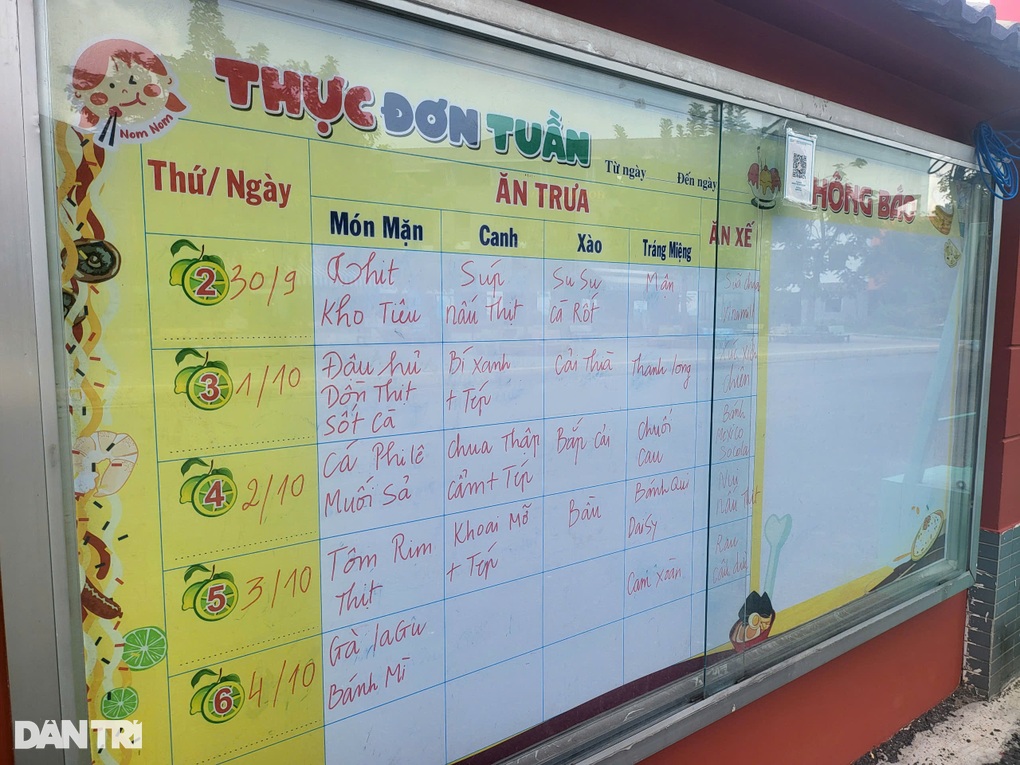 Nom Nom
THỰC ĐƠN TUẦN
Từ ngày
Đến ngày
HÔNG BÁO
Thứ/ Ngày
ĂN TRƯA
ĂN XẾ
Món Mặn
Canh
Xào
Tráng Miệng
2 30/9
Thịt
Kho Tiêu
Súp
nấu Thịt
Su Su
cà Rốt
Mận
Sữa chua
Vinamilk
3 1/10
Đậu hủ
Dồn Thịt
sốt Cà
Bí xanh
+ Tép
Cải Thìa
Thanh long
chiên
4 2/10
Cá Phi lê
Muối Sả
chua Thập
cẩm + Tép
Bắp cải
Chuối
Cau
Bánh
Mexico
Socola
5 3/10
Tôm Rim
Thịt
Khoai Mỡ
+ Tép
Bầu
Bánh Qui
Daisy
Nui
nấu Thịt
6 4/10
Gà laGu
Bánh Mì
Cam xoàn
Rau
câu dừa
DÂN TRÍ